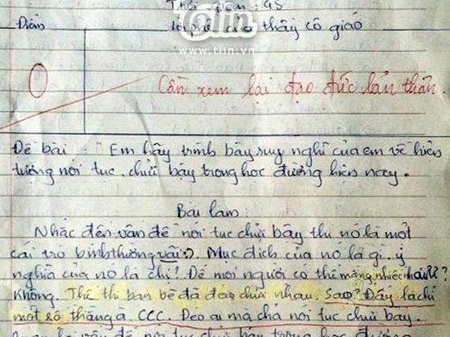 Thời gian: 95
Điểm Lời phê của thầy cô giáo
tiin
www.tiin.vn
0 Cần xem lại đạo đức bản thân
Đề bài: "Em hãy trình bày suy nghĩ của em về hiện
tượng nói tục, chửi bậy trong học đường hiện nay.
Bài làm:
Nhắc đến vấn đề nói tục chửi bậy thì nó là một
cái trò bình thường vãi :). Mục đích của nó là gì, ý
nghĩa của nó là chi? Để mọi người có thể mắng nhiếc nhau?
Không. Thế thì bạn bè đã đéo chơi nhau. Sao? Đấy là chỉ
một số thằng ạ. CCC. Đéo ai mà chả nói tục chửi bậy.
vấn đề nói tục chửi bậy trong học đường